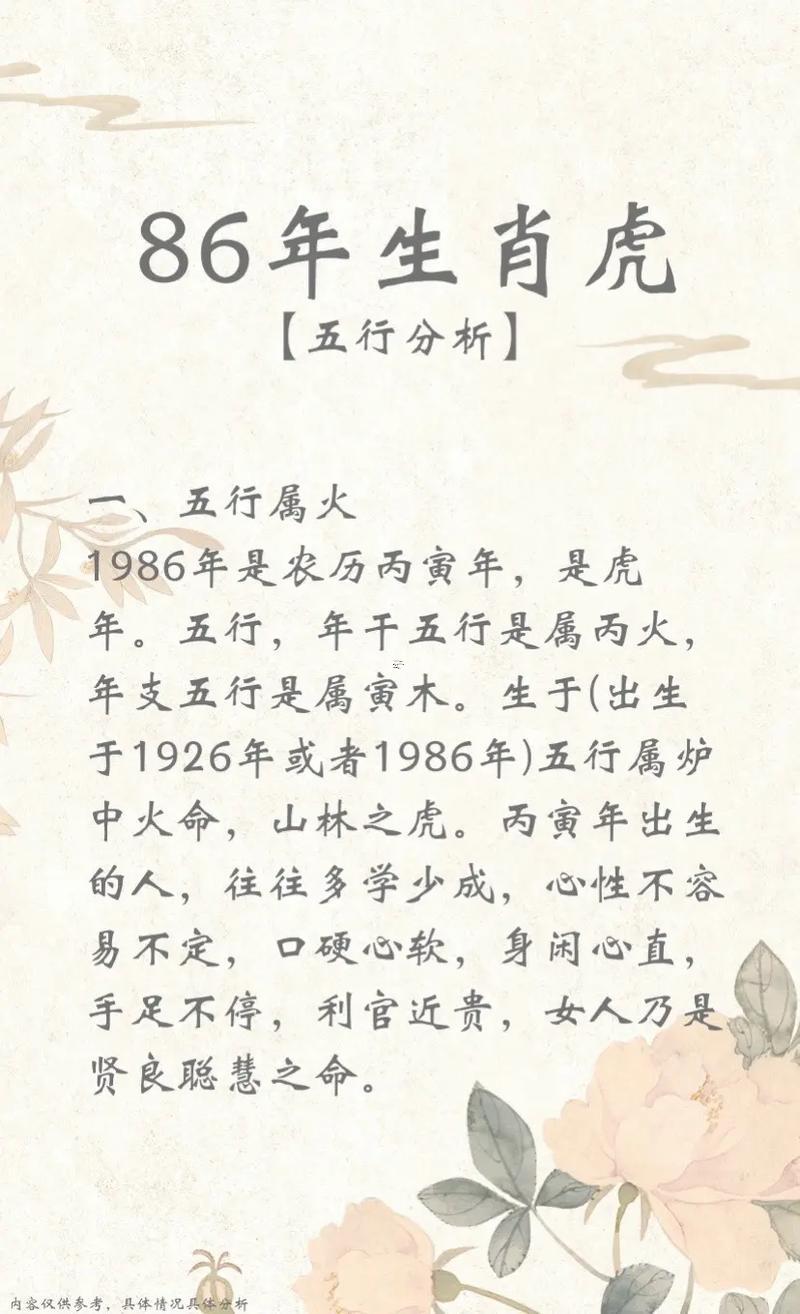 86年生肖虎
【五行分析】
一、五行属火
1986年是农历丙寅年，是虎
年。五行，年干五行是属丙火，
年支五行是属寅木。生于(出生
于1926年或者1986年)五行属炉
中火命，山林之虎。丙寅年出生
的人，往往多学少成，心性不容
易不定，口硬心软，身闲心直，
手足不停，利官近贵，女人乃是
贤良聪慧之命。
内容仅供参考，具体情况具体分析